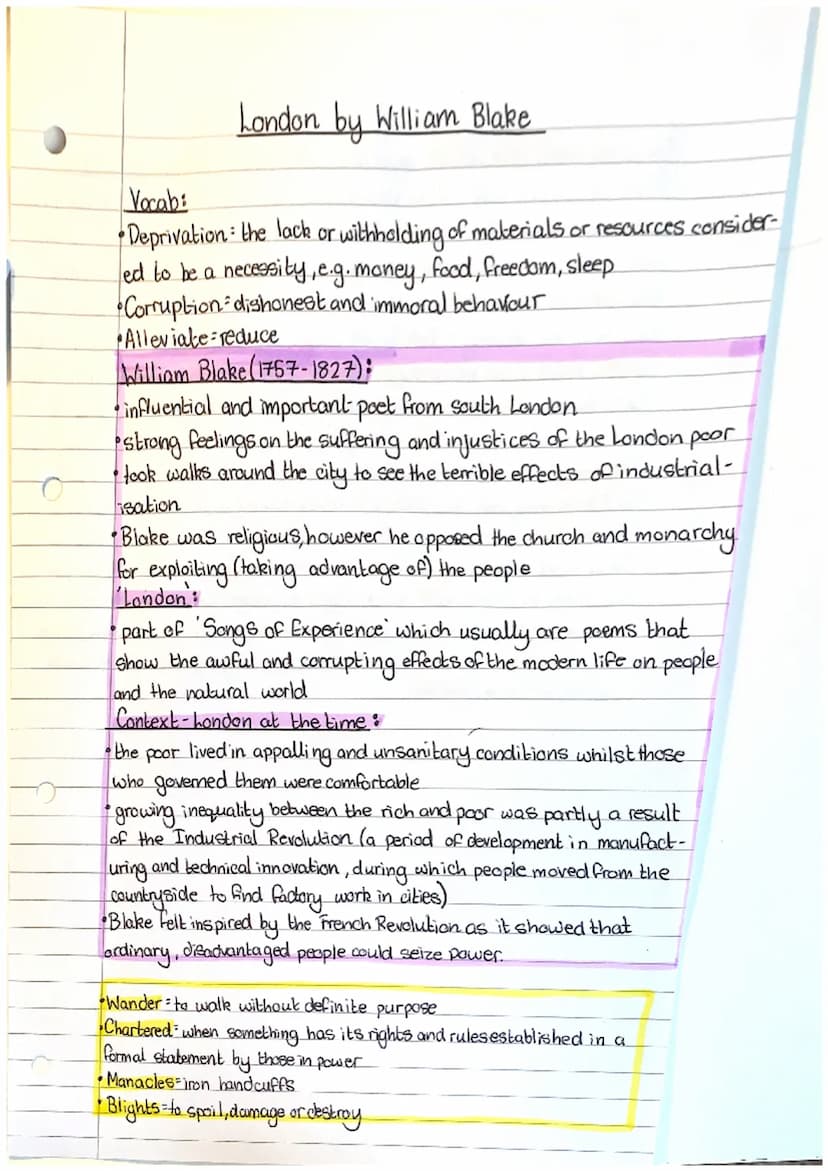 London by William Blake
Vocab:
• Deprivation: the lack or withholding of materials or resources consider-
ed to be a necessity, e.g. money, food, freedom, sleep
• Corruption = dishonest and immoral behaviour
• Alleviate = reduce
William Blake (1757-1827):
• influential and important poet from south London
• strong feelings on the suffering and injustices of the London poor
• took walks around the city to see the terrible effects of industrial-
isation
• Blake was religious, however he opposed the church and monarchy
for exploiting (taking advantage of) the people
'London':
• part of 'Songs of Experience' which usually are poems that
show the awful and corrupting effects of the modern life on people
and the natural world
Context - London at the time:
• the poor lived in appalling and unsanitary conditions whilst those
who governed them were comfortable
• growing inequality between the rich and poor was partly a result
of the Industrial Revolution (a period of development in manufact-
uring and technical innovation, during which people moved from the
countryside to find factory work in cities)
• Blake felt inspired by the French Revolution as it showed that
ordinary, disadvantaged people could seize power.
• Wander = to walk without definite purpose
• Chartered = when something has its rights and rules established in a
formal statement by those in power
• Manacles = iron handcuffs
• Blights = to spoil, damage or destroy